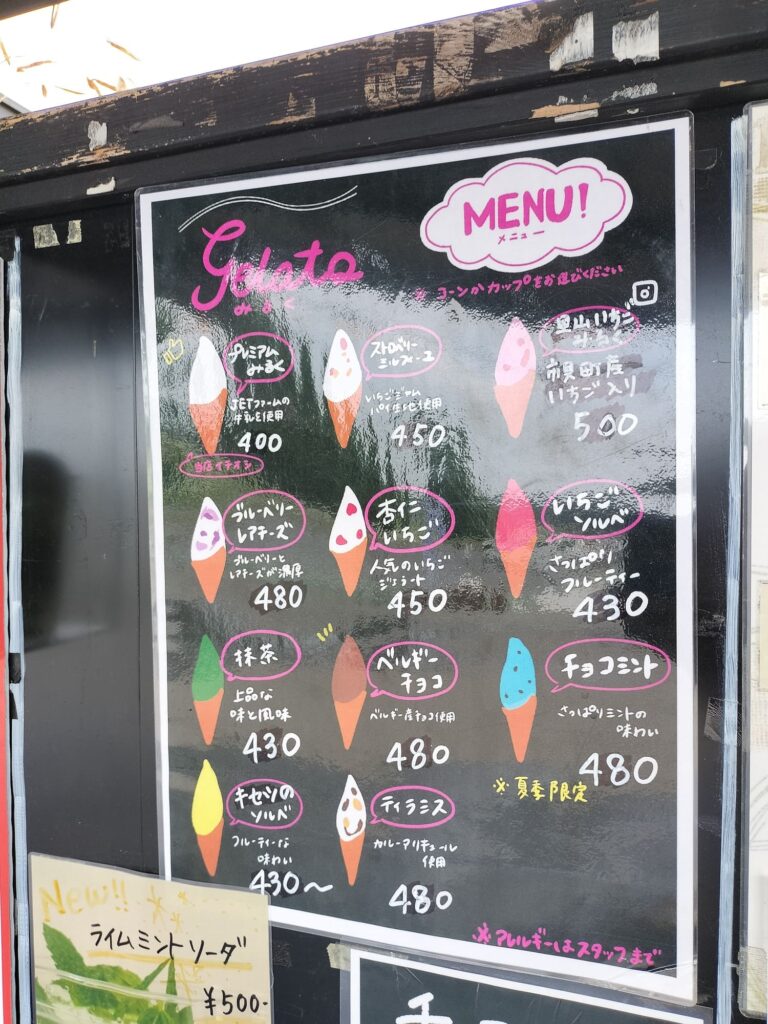 Gelato
みるく
MENU!
メニュー
※コーンかカップをお選びください
プレミアム
みるく
JETファームの
牛乳を使用
400
当店イチオシ
ストロベリー
ミルフィーユ
いちごジャム
パイ生地使用
450
里山いちご
みるく
市貝町産
いちご入り
500
ブルーベリー
レアチーズ
ブルーベリーと
レアチーズが濃厚
480
杏仁
いちご
人気のいちご
ジェラート
450
いちご
ソルベ
さっぱり
フルーティー
430
抹茶
上品な
味と風味
430
ベルギー
チョコ
ベルギー産チョコ使用
480
チョコミント
さっぱりミントの
味わい
480
※夏季限定
キセツの
ソルベ
フルーティーな
味わい
430〜
ティラミス
カルーアリキュール
使用
480
※アレルギーはスタッフまで
New!!
ライムミントソーダ
¥500-